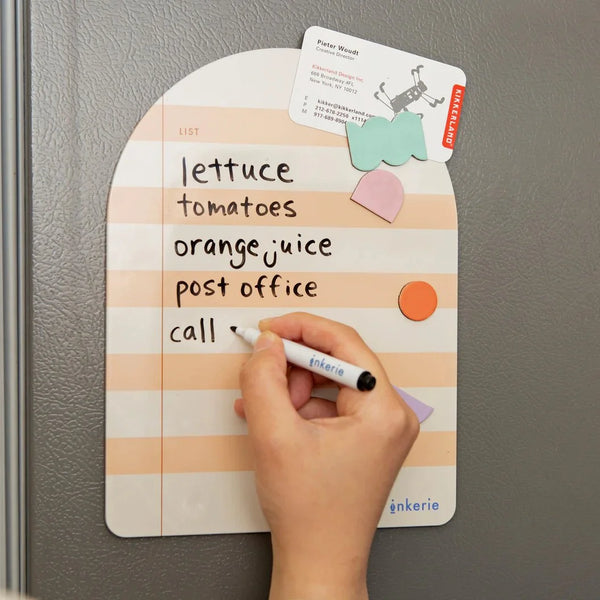 Pieter Woudt
Creative Director
Kikkerland Design Inc.
666 Broadway 4FL
New York, NY 10012
E kikker@kikkerland.com
P 212-678-2250 x114
M
KIKKERLAND
LIST
lettuce
tomatoes
orange juice
post office
call
inkerie
inkerie